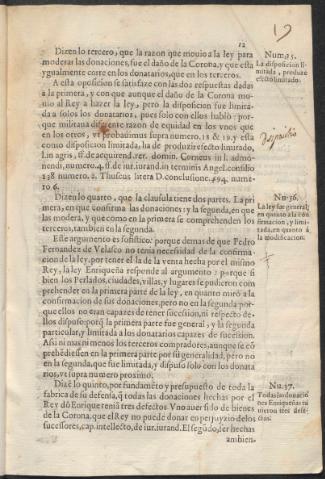 19
12
Dizen lo tercero, que la razon que mouio a la ley para
moderar las donaciones, fue el daño de la Corona, y que esta
ygualmente corre en los donatarios, que en los terceros.
A esta oposicion se satisfaze con las dos respuestas dadas
a la primera, y con que aunque el daño de la Corona mo-
uio al Rey a hazer la ley, pero la disposicion fue limita-
da a solos los donatarios, pues solo con ellos hablò: por-
que militaua diferente razon de equidad en los vnos que
en los otros, vt probauimus supra numero, 18 & 19. y esta
como disposicion limitada, ha de produzir efeto limitado,
l. in agris, ff. de acquirend. rer. domin. Corneus in l. admo-
nendi, numero 4. ff. de iur. iurand. in terminis Angel. consilio
238 numero 2. Thuscus litera D. conclusione 494. nume-
ro 6.
Num. 35.
La disposicion li
mitada, produze
efecto limitado.
Dizen lo quarto, que la clausula tiene dos partes. La pri-
mera, en que confirma las donaciones; y la segunda, en que
las modera, y que como en la primera se comprehenden los
terceros, tambien en la segunda.
Este argumento es sofistico: porque demas de que Pedro
Fernandez de Velasco no tenia necesidad de la confirma-
cion de la ley, por tener el la de la venta hecha por el mismo
Rey, la ley Enriqueña responde al argumento: porque si
bien los Perlados, ciudades, villas, y lugares se pudieron com
prehender en la primera parte de la ley, en quanto mirò a la
confirmacion de sus donaciones, pero no en la segunda por-
que ellos no eran capazes de tener sucession, ni respecto de
llos dispuso: porq̃ la primera parte fue general, y la segunda
particular, y limitada a los donatarios capazes de sucession.
Assi ni mas ni menos los terceros compradores, aunque se cõ
prehẽdiessen en la primera parte por su generalidad, pero no
en la segunda, que fue limitada, y dispuso solo con los dona
rios, vt supra numero proximo.
Nu. 36.
La ley fue general,
en quanto a la cõ
firmacion, y limi-
tada, en quanto à
la modificacion.
Dizẽ lo quinto, por fundamẽto y presupuesto de toda la
fabrica de su defensa, q̃ todas las donaciones hechas por el
Rey dõ Enrique teniã tres defectos. Vno auer sido de bienes
de la Corona, que el Rey no puede donar en perjuyzio de los
sucessores, cap. intellecto, de iur. iurand. El segũdo, ser hechas
Nu. 37.
Todas las donacio
nes Enriqueñas tu
uieron tres defe-
ctos.
ambien.